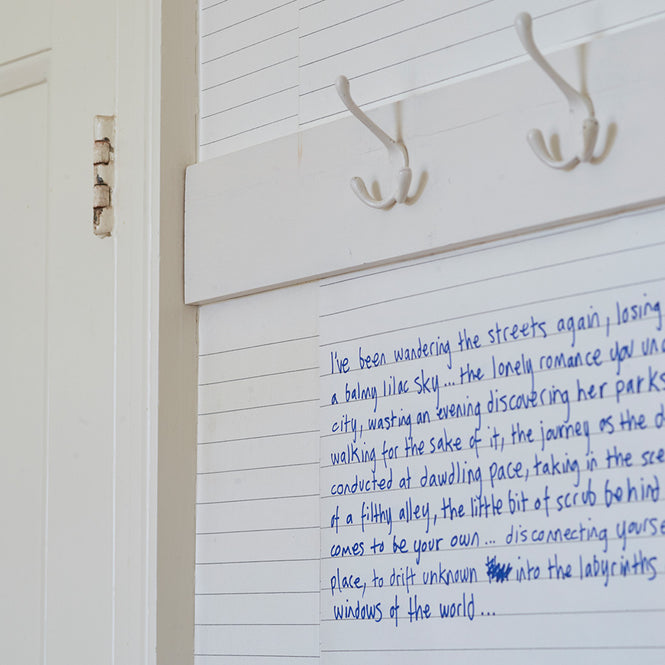 I've been wandering the streets again, losing
a balmy lilac sky... the lonely romance you
city, wasting an evening discovering her parks
walking for the sake of it, the journey as the
conducted at dawdling pace, taking in the
of a filthy alley, the little bit of scrub behind
comes to be your own... disconnecting
place, to drift unknown into the labyrinths
windows of the world...